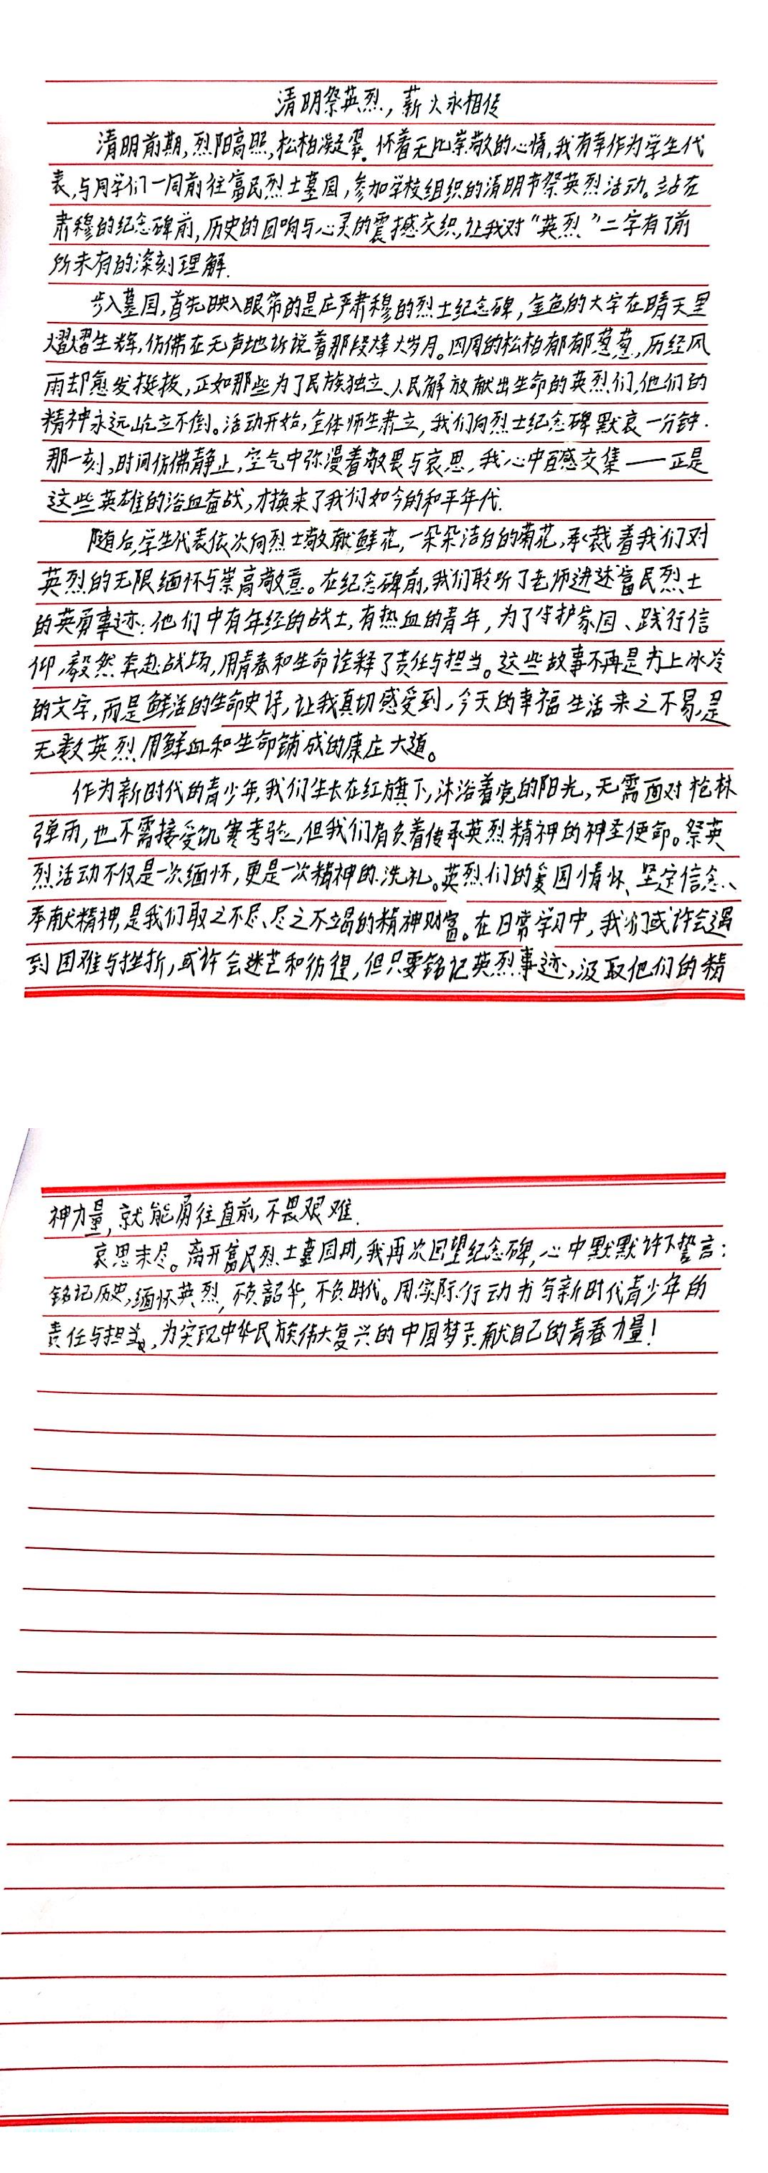 清明祭英烈，薪火永相传
清明前期，烈阳高照，松柏凝翠。怀着无比崇敬的心情，我有幸作为学生代
表，与同学们一同前往富民烈士墓园，参加学校组织的清明节祭英烈活动。站在
肃穆的纪念碑前，历史的回响与心灵的震撼交织，让我对“英烈”二字有了前
所未有的深刻理解.
步入墓园，首先映入眼帘的是庄严肃穆的烈士纪念碑，金色的大字在晴天里
熠熠生辉，仿佛在无声地诉说着那段烽火岁月。四周的松柏郁郁葱葱，历经风
雨却愈发挺拔，正如那些为了民族独立、人民解放献出生命的英烈们，他们的
精神永远屹立不倒。活动开始，全体师生肃立，我们向烈士纪念碑默哀一分钟.
那一刻，时间仿佛静止，空气中弥漫着敬畏与哀思，我心中百感交集——正是
这些英雄的浴血奋战，才换来了我们如今的和平年代.
随后，学生代表依次向烈士敬献鲜花，一朵朵洁白的菊花，承载着我们对
英烈的无限缅怀与崇高敬意。在纪念碑前，我们聆听了老师讲述富民烈士
的英勇事迹：他们中有年轻的战士，有热血的青年，为了守护家园、践行信
仰，毅然奔赴战场，用青春和生命诠释了责任与担当。这些故事不再是书上冰冷
的文字，而是鲜活的生命史诗，让我真切感受到，今天的幸福生活来之不易，是
无数英烈用鲜血和生命铺成的康庄大道。
作为新时代的青少年，我们生长在红旗下，沐浴着党的阳光，无需面对枪林
弹雨，也不需接受饥寒考验，但我们有负着传承英烈精神的神圣使命。祭英
烈活动不仅是一次缅怀，更是一次精神的洗礼。英烈们的爱国情怀、坚定信念、
奉献精神，是我们取之不尽、尽之不竭的精神财富。在日常学习中，我们或许会遇
到困难与挫折，或许会迷茫和彷徨，但只要铭记英烈事迹，汲取他们的精
神力量，就能勇往直前，不畏艰难.
哀思未尽。离开富民烈士墓园时，我再次回望纪念碑，心中默默许下誓言：
铭记历史，缅怀英烈，不负韶华，不负时代。用实际行动书写新时代青少年的
责任与担当，为实现中华民族伟大复兴的中国梦贡献自己的青春力量！